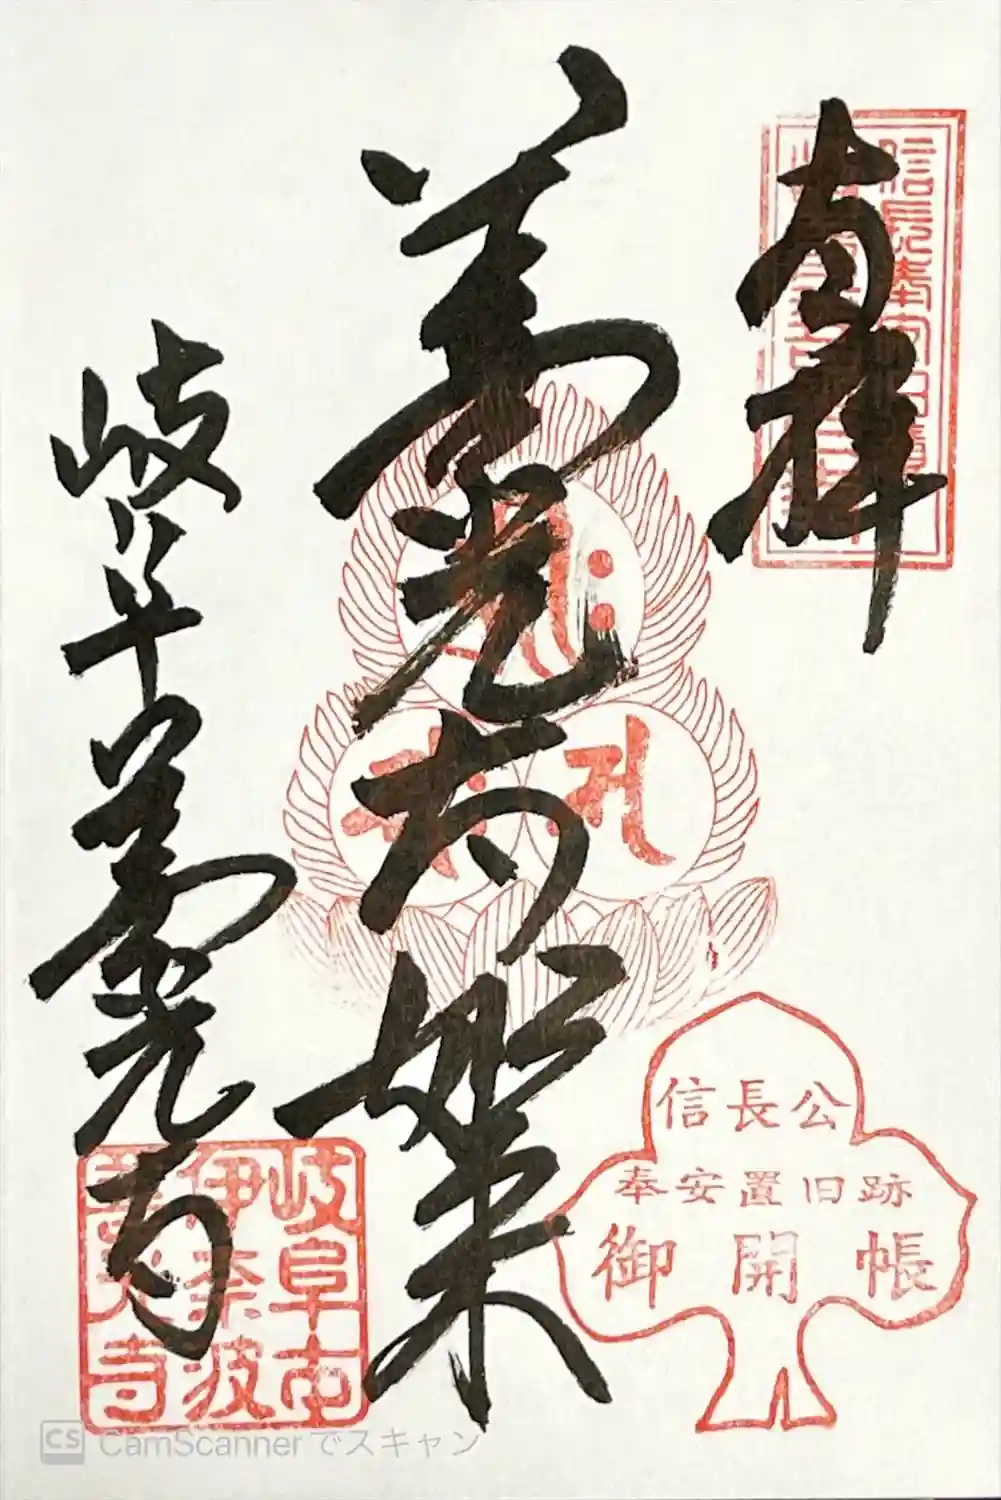 奉拝
善光寺如来
岐阜善光寺
信長公
奉安置旧跡
御開帳
岐阜市
伊奈波
善光寺
CS CamScannerでスキャン